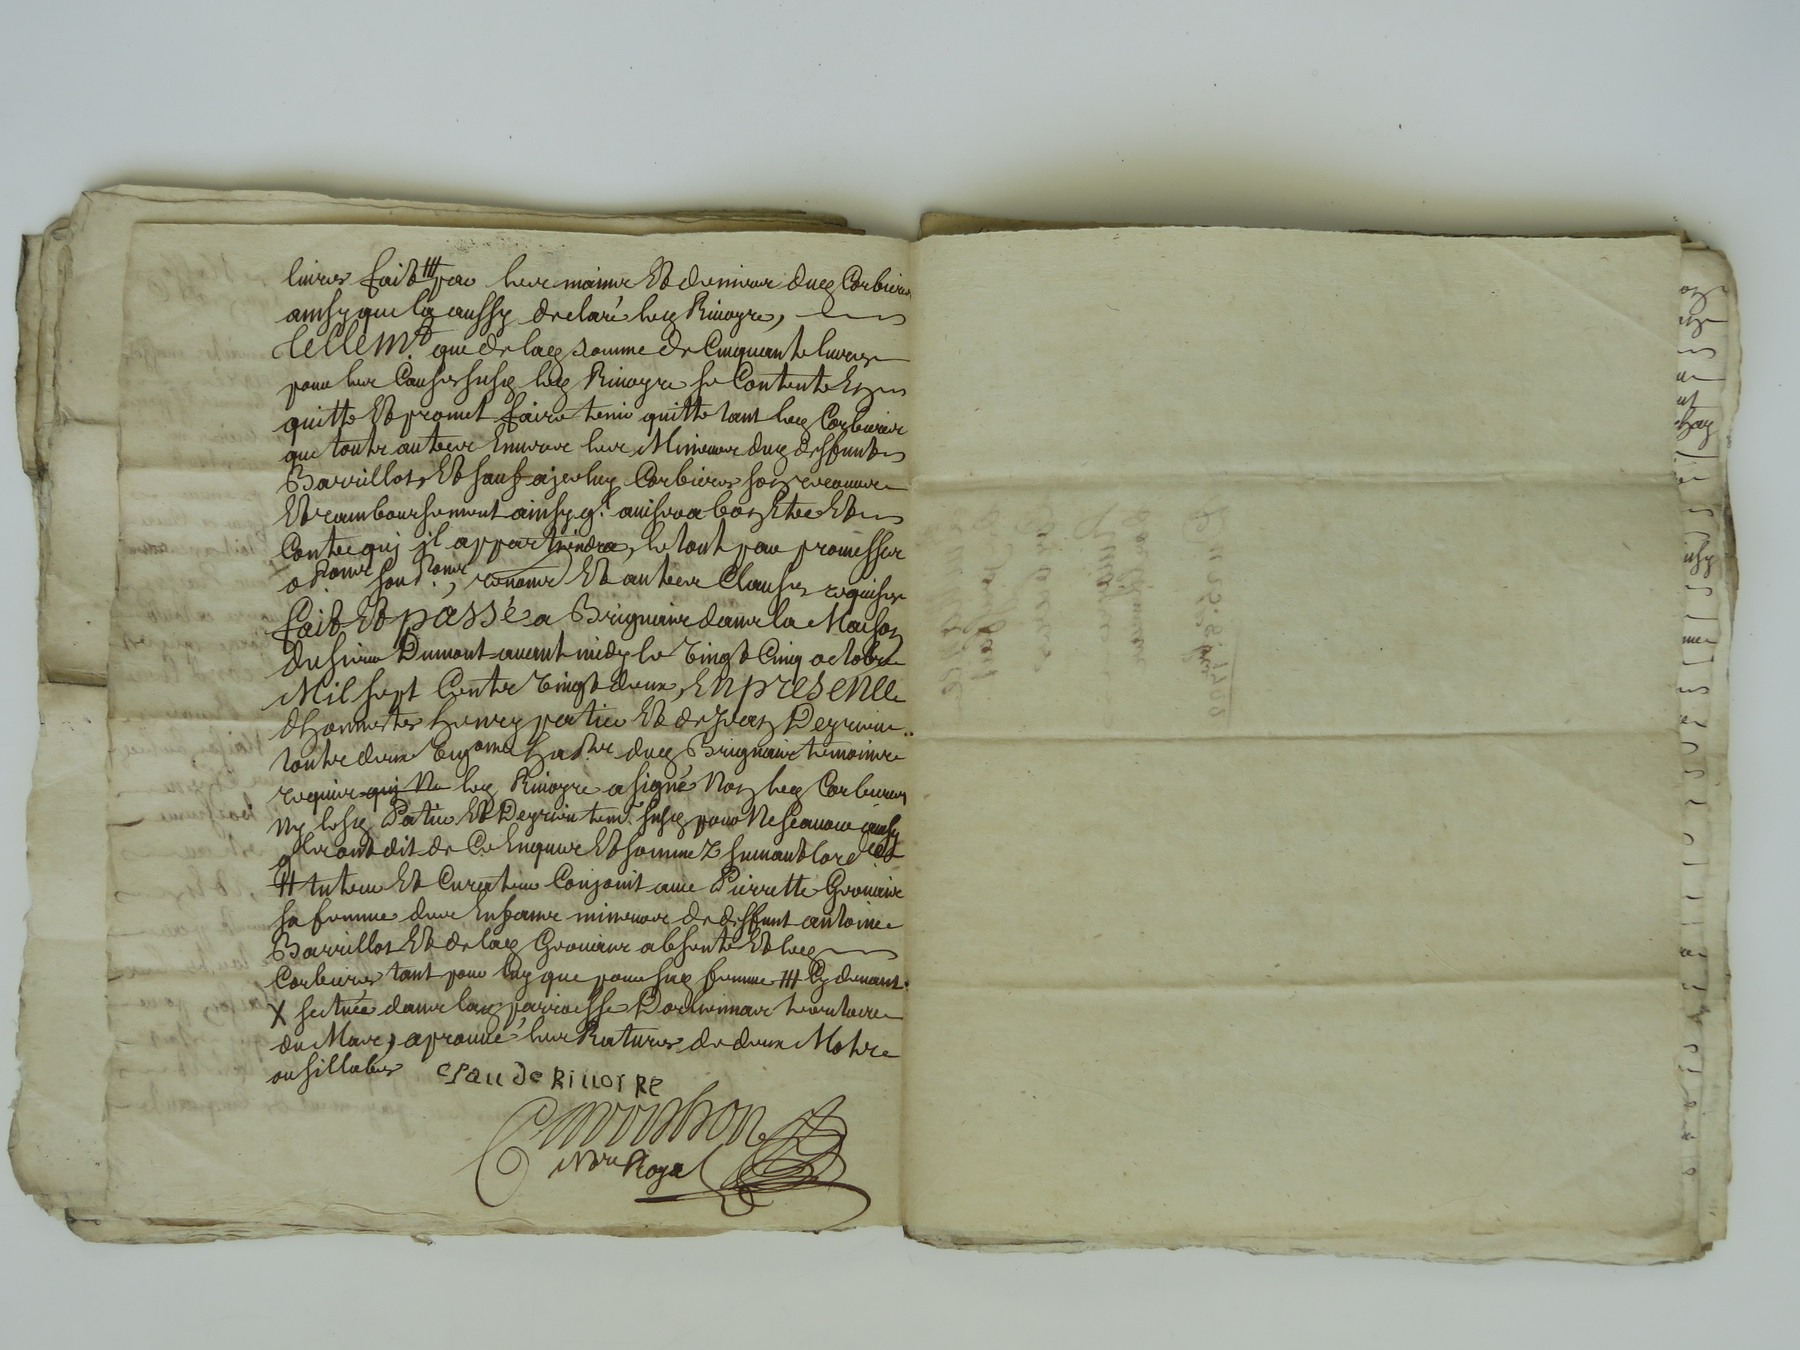 livres fait ⧻ par les mains et deniers dud Corbieres
ainsy que la aussy declaré led Rivoyre,
tellem.t que de lad somme de Cinquante livres
pour les Causes susd led Rivoyre se Contente En
quitte Et promet faire tenir quitte tant led Corbieres
que toutz autres Envers les Mineurs dud deffunt
Barrillot, Et sauf a jceluy Corbieres son recouvre
Et rambourhement ainsy q.l avisera bon Etre Et
Contre quj jl appartiendra, le tout par promesses
soub.ons, renon.ons Et autres Clauses requises
fait Et passé a Brignais dans la Maison
du sieur Dumont avant midy le Vingt Cinq octobre
Mil sept Centz Vingt deux, En presence
dhonnestes henry patier Et de Jean Deyrieu
toutz deux Vignerons ha.bts dud Brignais temoins
requis quj Ne led Rivoyre a signé Non led Corbieres
Ny lesd Patier Et Deyrieu tem. susd pour Ne scavoir ainsy
qlz ont dit de Ce Enquis Et sommez suivant lord.ce
⧺ tuteur Et Curateur Conjoint avec Pierrette Gronair
sa femme des Enfans mineurs de deffunt antoine
Barrillot Et de lad Gronair absente Et led
Corbieres tant pour luy que pour sad femme ⧻ Cy devant
X scituée dans lad parroisse Dorlienas territoire
du Mas, aprouvé les Ratures de deux Mots
ou sillabes
Clau De RiuoiRe
Not.re Royal